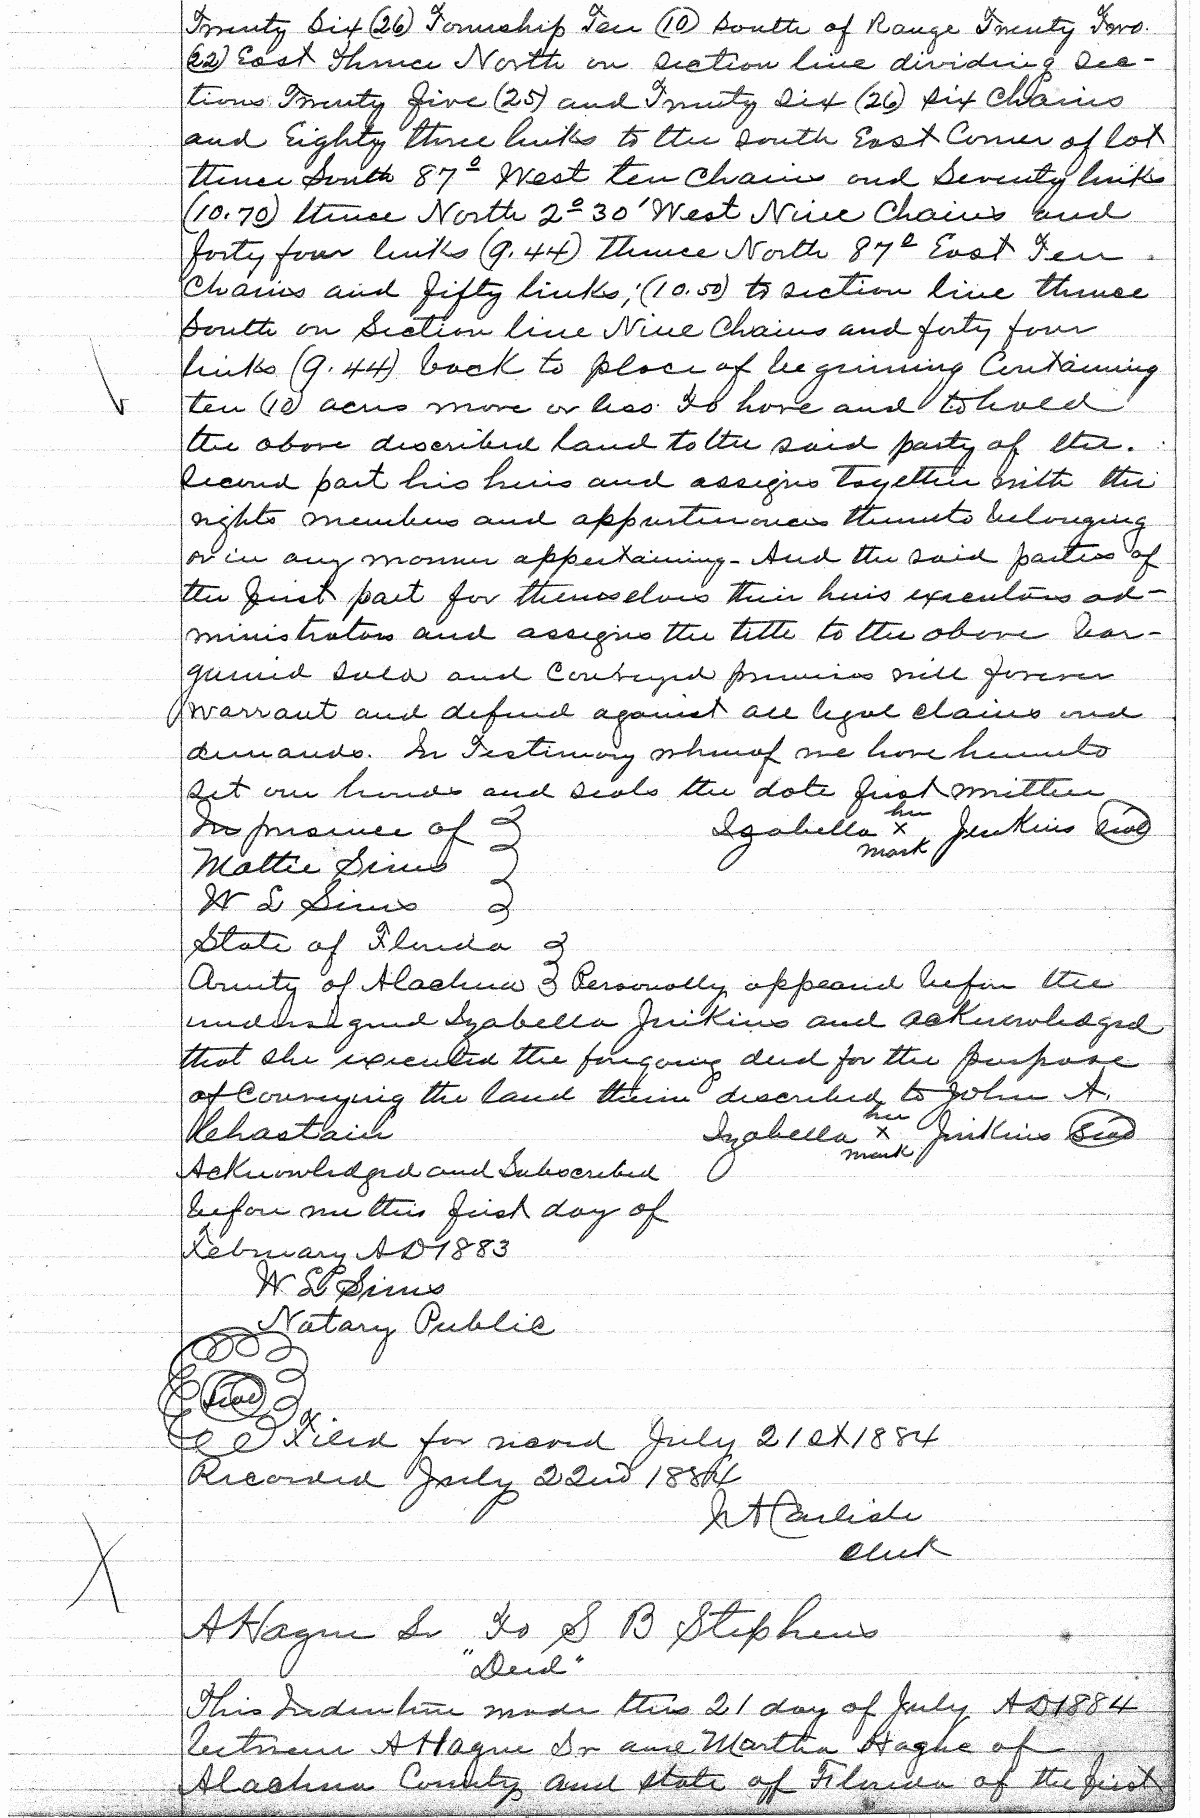 Twenty Six (26) Township Ten (10) South of Range Twenty Two
(22) East Thence North on section line dividing Sec-
tions Twenty five (25) and Twenty Six (26) Six Chains
and Eighty three links to the South East Corner of lot
thence South 87° West ten Chains and Seventy links
(10.70) thence North 2° 30' West Nine Chains and
forty four links (9.44) thence North 87° East Ten
Chains and fifty links; (10.50) to section line thence
South on Section line Nine Chains and forty four
links (9.44) back to place of beginning Containing
ten (10) acres more or less. To have and to hold
the above described land to the said party of the
Second part his heirs and assigns together with the
rights members and appurtenances thereunto belonging
or in any manner appertaining - And the said parties of
the first part for themselves their heirs executors ad-
ministrators and assigns the title to the above bar-
gained sold and Conveyed premises will forever
warrant and defend against all legal claims and
demands. In Testimony whereof we have hereunto
set our hands and seals the date first written
In presence of
Izabella her x mark Jenkins Seal
Mattie Sims
W L Sims
State of Florida
County of Alachua Personally appeared before the
undersigned Izabella Jenkins and acknowledged
that she executed the foregoing deed for the purpose
of Conveying the land therein described to John A.
Rehastain
Izabella her x mark Jenkins Seal
Acknowledged and Subscribed
before me this first day of
February AD 1883
W L Sims
Notary Public
Seal
Filed for record July 21st 1884
Recorded July 22nd 1884
Carlisle
Clerk
A Hague Sr To S B Stephens
"Deed"
This Indenture made this 21 day of July AD 1884
between A Hague Sr and Martha Hague of
Alachua County and State of Florida of the first